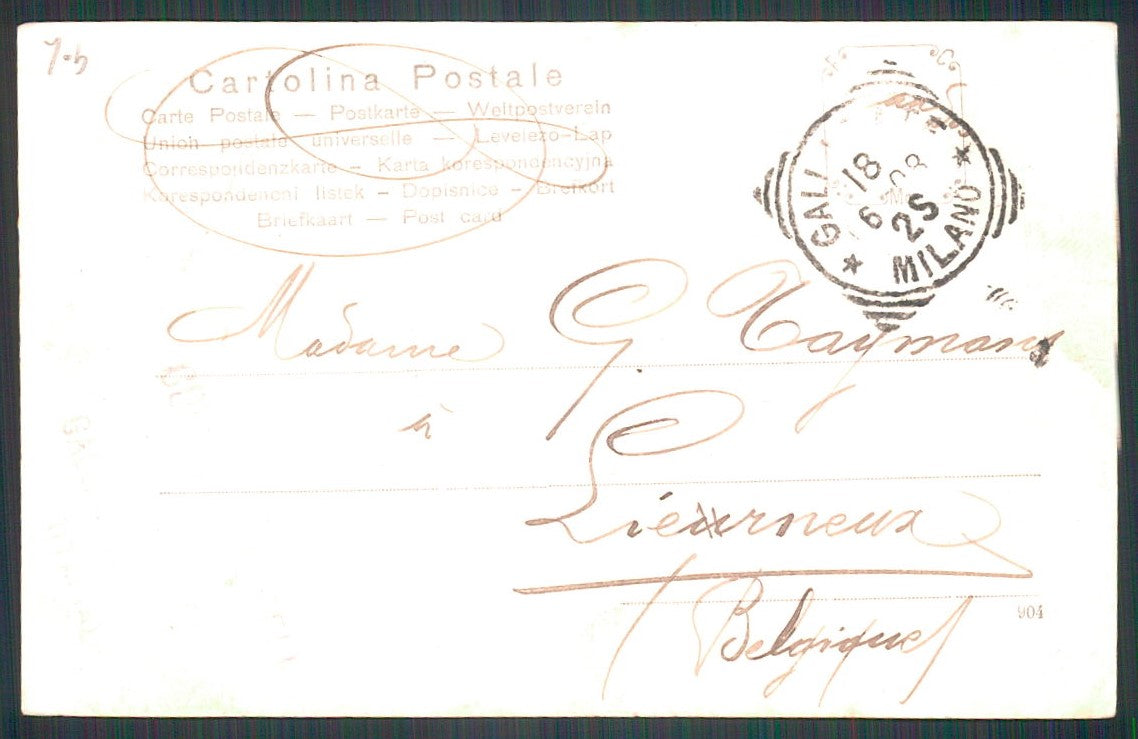 7.4
Cartolina Postale
Carte Postale — Postkarte — Weltpostverein
Union postale universelle — Levelezo-Lap
Correspondenzkarte — Karta korespondencyjna
Korespondeneni listek — Dopisnice — Brefkort
Briefkaart — Post card
GALL
18
6
08
2S
MILANO
Madame G. Haymans
à
Lierneux
Belgique
904